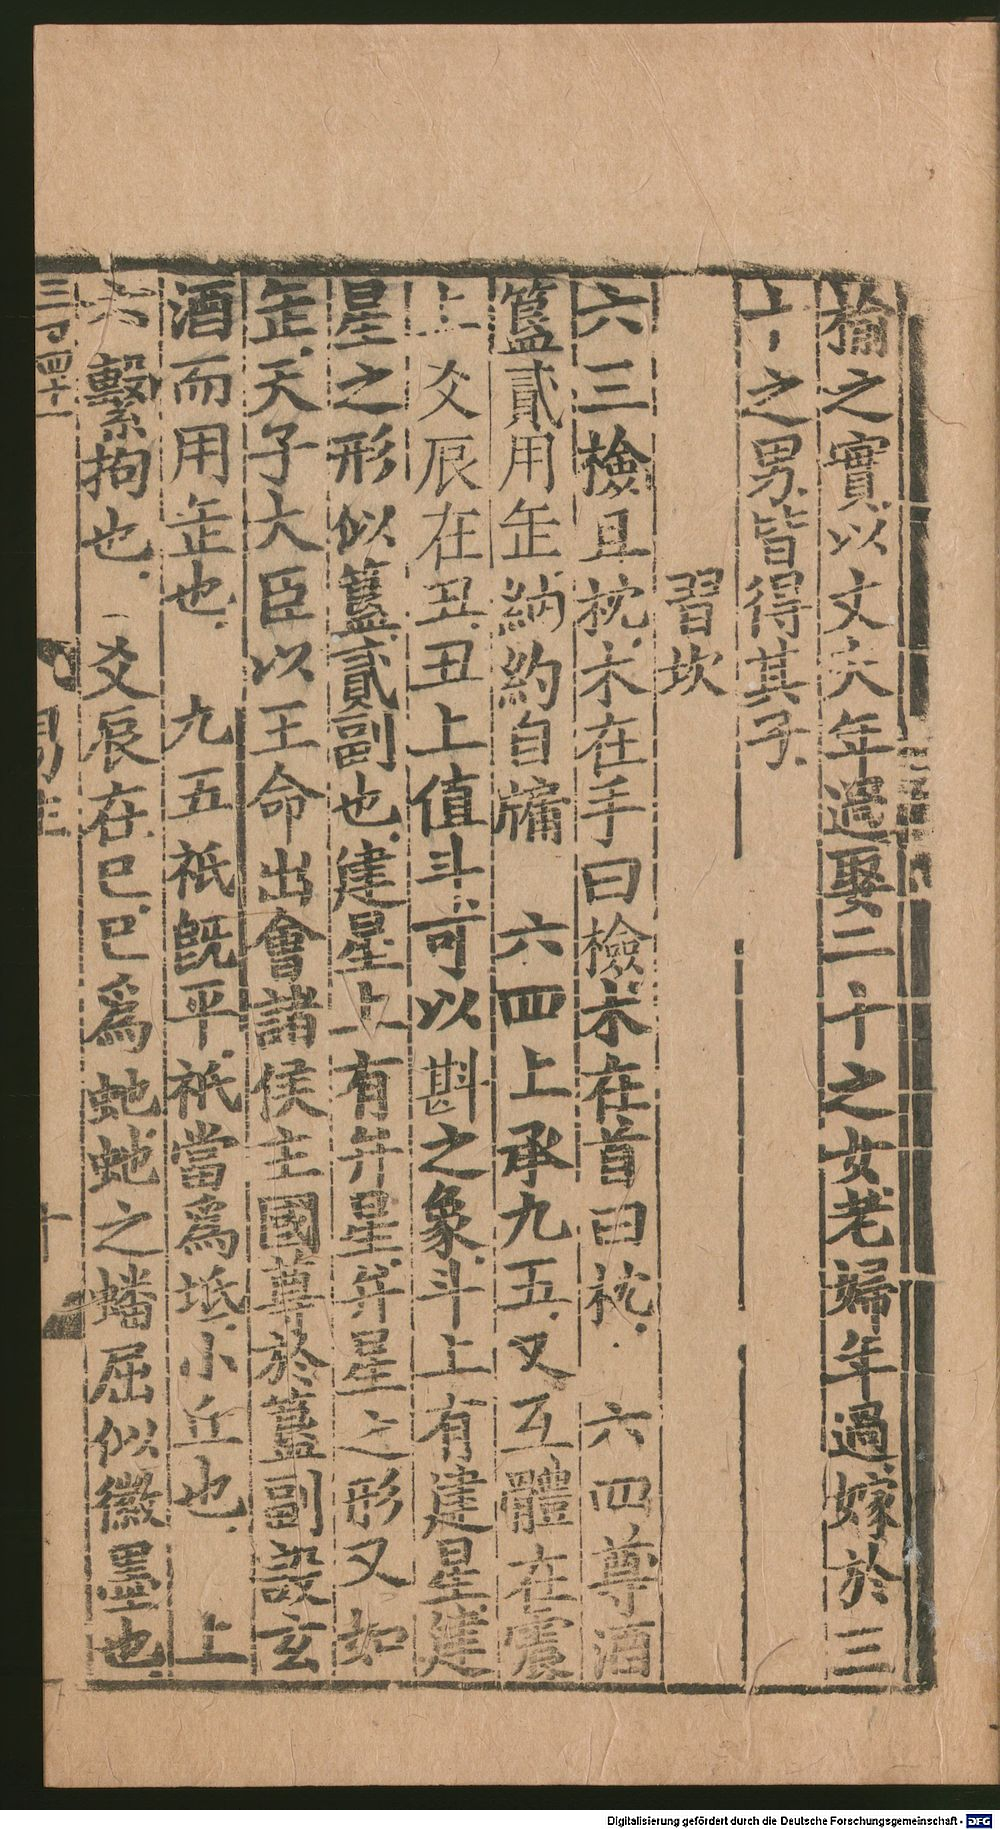 楡之實以丈夫年過娶二十之女老婦年過嫁於三
十之男皆得其子
習坎
六三檢且枕木在手曰檢木在首曰枕 六四尊酒
簋貳用缶納約自牖 六四上承九五又互體在震
上爻辰在丑丑上值斗可以斟之象斗上有建星建
星之形似簋貳副也建星上有弁星弁星之形又如
缶天子大臣以王命出會諸侯主國尊於簋副設玄
酒而用缶也 九五祇旣平祇當爲坻小丘也 上
六繫拘也 爻辰在巳巳爲虵虵之蟠屈似徽墨也
三丁四十一
Digitalisierung gefördert durch die Deutsche Forschungsgemeinschaft - DFG